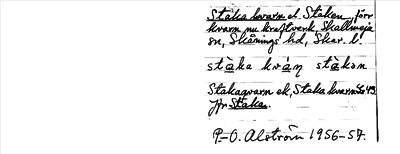 Staka kvarn el. Staken, förr
kvarn nu kraftverk. Skallmeja
sn, Skånings hd, Skar. l!
stàka kvάɳ stàkən
Stakaqvarn ek, Staka kvarn
Jfr Staka.
P-O. Alström 1956-57.